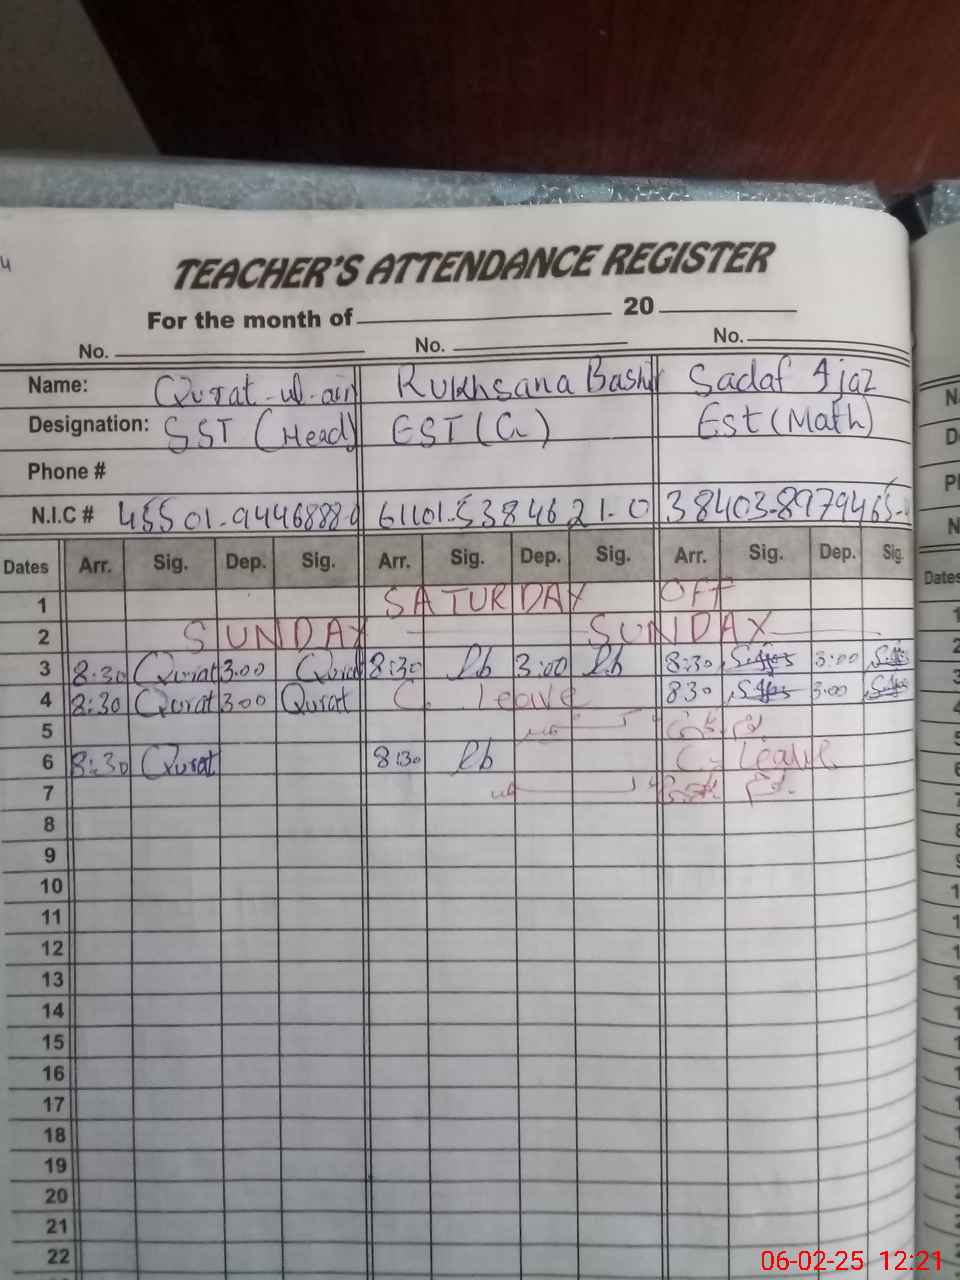 TEACHER'S ATTENDANCE REGISTER
For the month of 20
No. No. No.
Name: Qurat-ul-ain Rukhsana Bashir Sadaf Ajaz
Designation: SST (Head) EST (G) Est (Math)
Phone #
N.I.C # 45501-9446888-0 61101-5384621-0 38403-8979465-
Dates Arr. Sig. Dep. Sig. Arr. Sig. Dep. Sig. Arr. Sig. Dep. Sig. Dates
1 SATURDAY OFF
2 SUNDAY SUNDAY
3 8:30 Qurat 3:00 Qurat 8:30 Rb 3:00 Rb 8:30 3:00
4 8:30 Qurat 3:00 Qurat C. leave 8 30 3:00
5
6 8:30 Qurat 8:30 Rb C. Leave
7
8
9
10
11
12
13
14
15
16
17
18
19
20
21
22
06-02-25 12:21